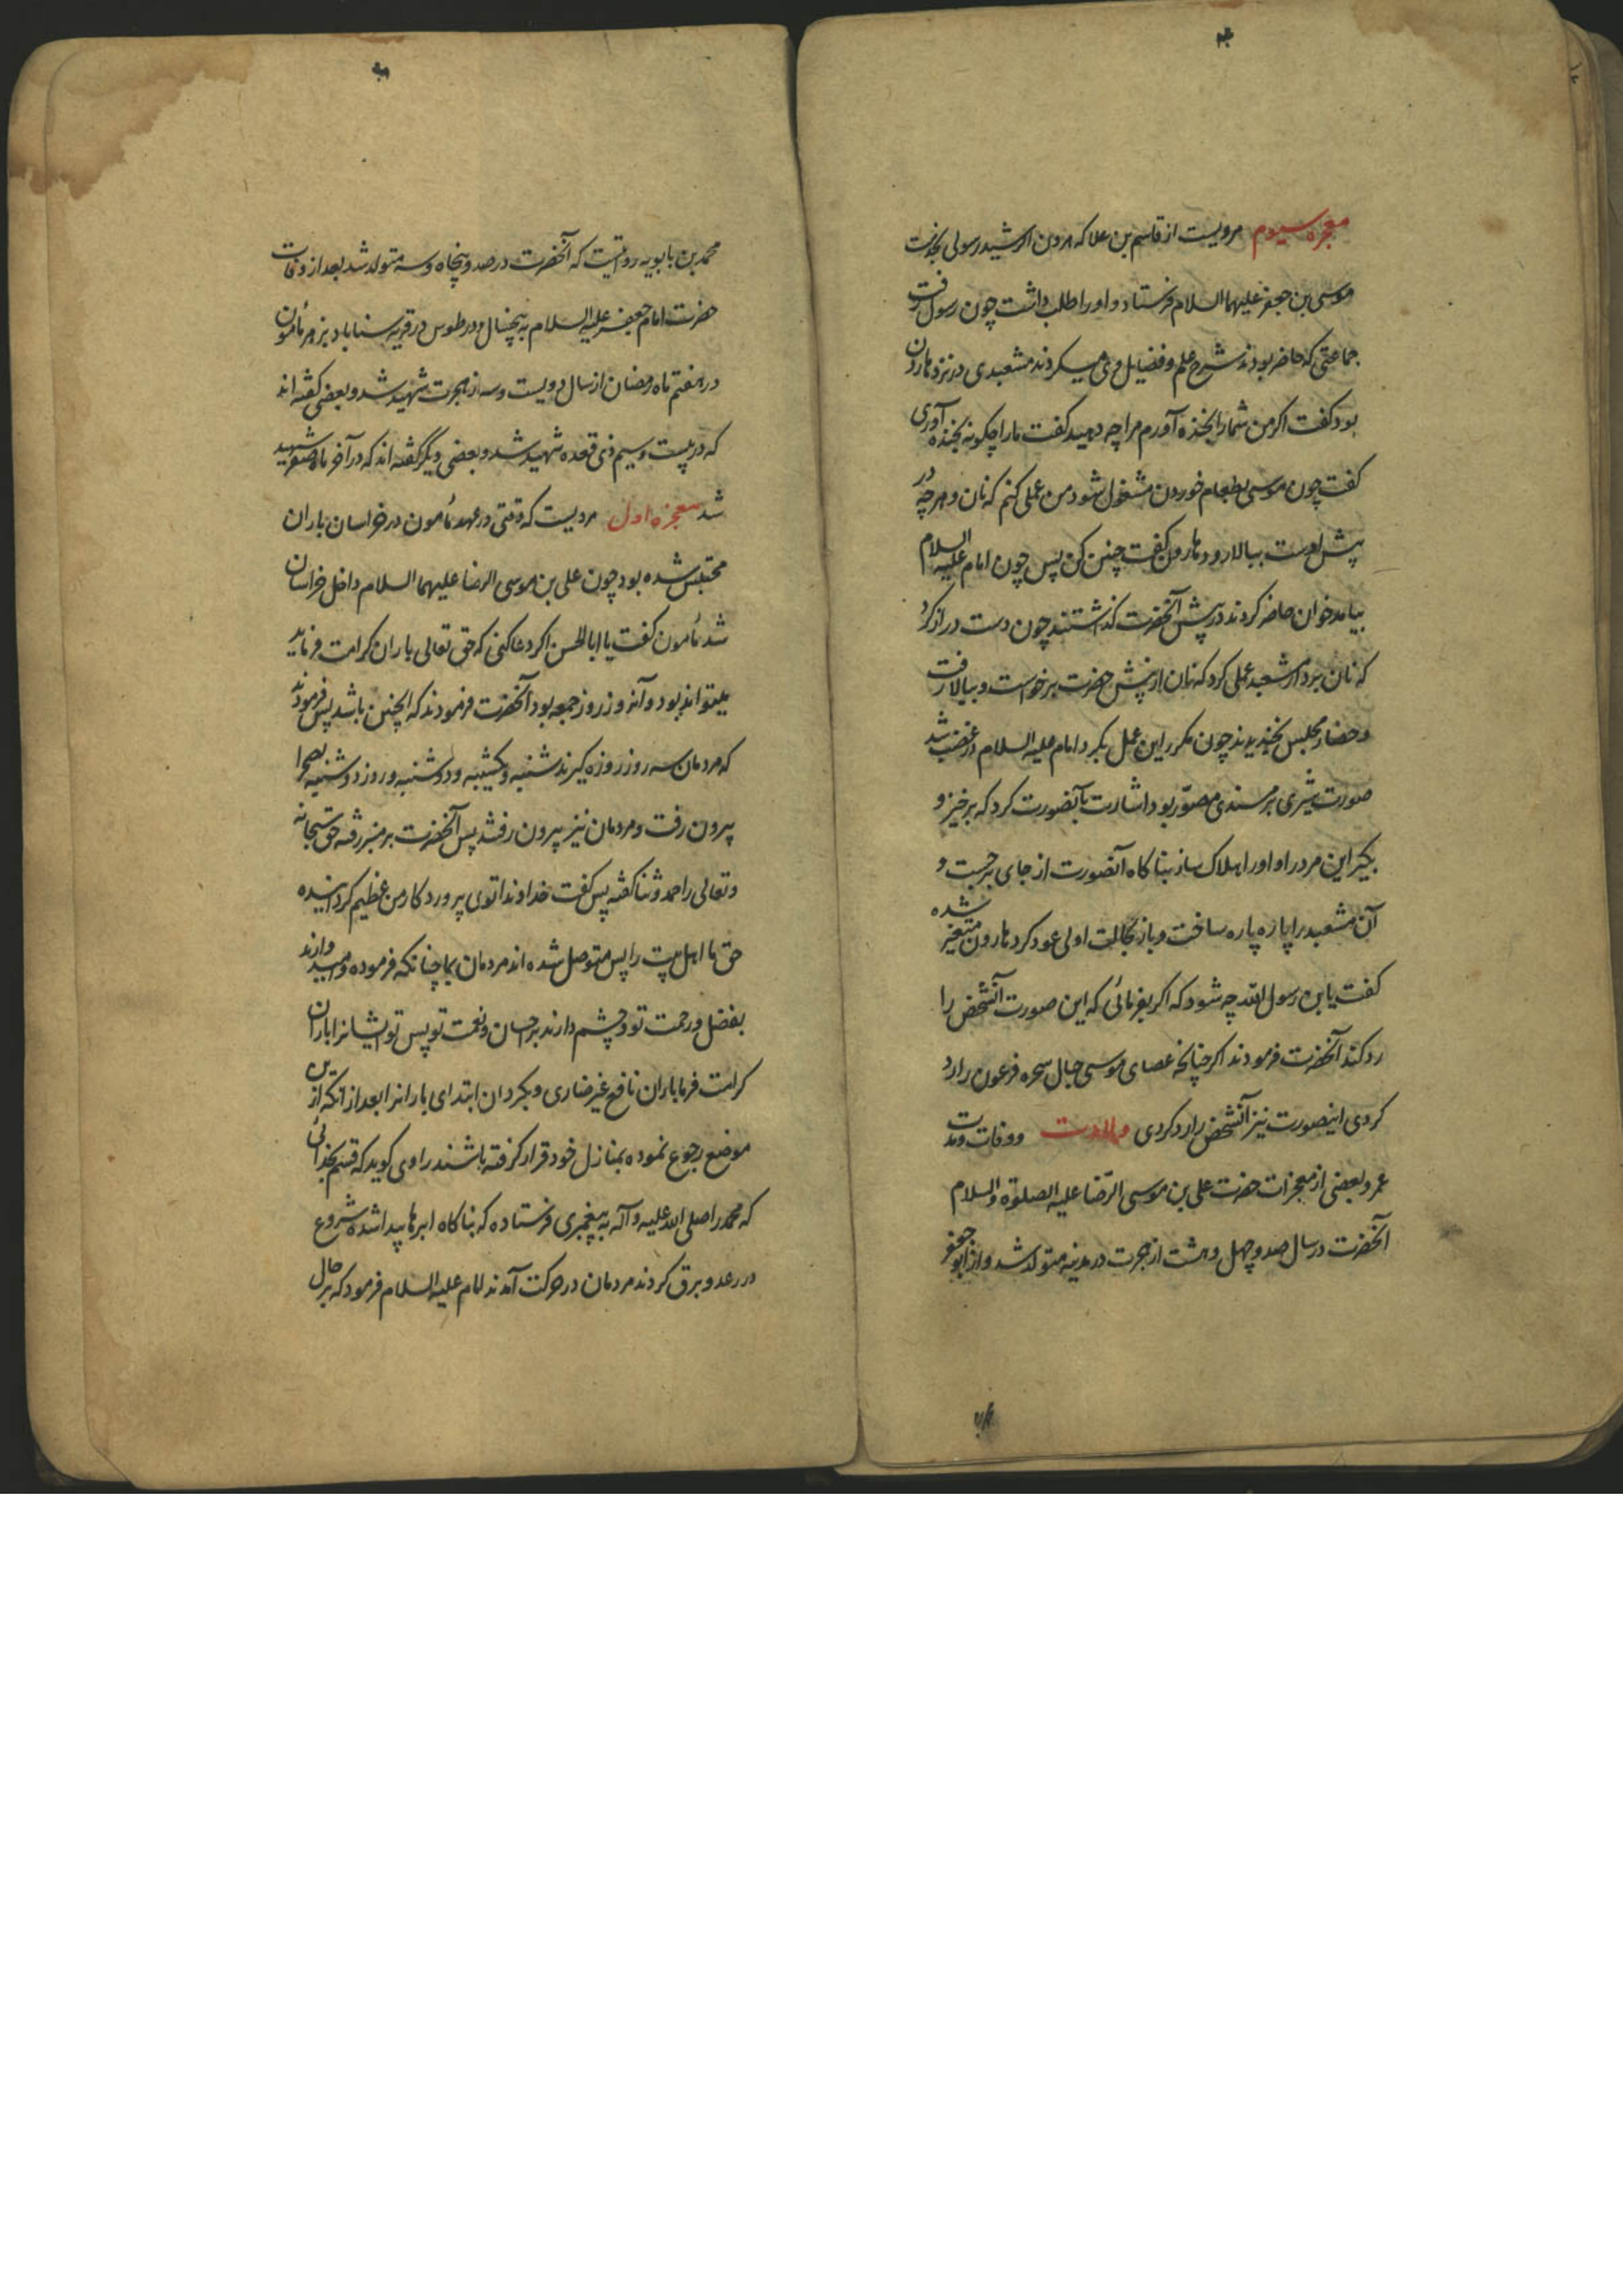 معجزه سیوم مرویست از قاسم بن علا که هرون الرشید رسولی بخدمت
موسی بن جعفر علیهما السلام فرستاد و او را طلب داشت چون رسول رفت
جماعتی که حاضر بودند شرح علم و فضایل وی میکردند مشعبدی در نزد هارون
بود کفت اکر من شما را بخنده آورم مرا چه دهید کفت ما را چکونه بخنده آوری
کفت چون موسی بطعام خوردن مشغول شود من عملی کنم که نان و هر چه در
پیش اوست ببالا رود هارون کفت چنین کن پس چون امام علیه السلام
بیامد خوان حاضر کردند در پیش آنحضرت کذاشتند چون دست دراز کرد
که نان بردارد مشعبد عملی کرد که نان از پیش حضرت برخواست و ببالا رفت
و حضار مجلس بخندیدند چون مکرر این عمل بکرد امام علیه السلام در غضب شد
صورت شیری بر مسندی مصوّر بود اشارت بآنصورت کرد که برخیز و
بکیر این مرد را و او را هلاک ساز بناکاه آنصورت از جای برجست و
آن مشعبد را پاره پاره ساخت و باز بحالت اولی عود کرد هارون متغیر شده
کفت یابن رسول الله چه شود که اکر بفرمائی که این صورت آنشخص را
رد کند آنحضرت فرمودند اکر چنانچه عصای موسی حبال سحره فرعون را رد
کردی اینصورت نیز آنشخص را رد کردی ولادت و وفات و مدت
عمر و بعضی از معجزات حضرت علی بن موسی الرّضا علیه الصلوة و السلام
آنحضرت در سال صد و چهل و هشت از هجرت در مدینه متولد شد و از ابو جعفر
محمد بن بابویه روایتیست که آنحضرت در صد و پنجاه و سه متولد شد بعد از وفات
حضرت امام جعفر علیه السلام به پنجسال و در طوس در قریه سناباد بزهر مأمون
در هفتم ماه رمضان از سال دویست و سه از هجرت شهید شد و بعضی کفته اند
که در بیست و سیم ذی قعده شهید شد و بعضی دیگر گفته اند که در آخر ماه صفر شهید
شد معجزه اول مرویست که وقتی در عهد مأمون در خراسان باران
محتبس شده بود چون علی بن موسی الرضا علیهما السلام داخل خراسان
شد مأمون کفت یا ابا الحسن اکر دعا کنی که حق تعالی باران کرامت فرماید
میتواند بود و آنروز روز جمعه بود آنحضرت فرمودند که اینچنین باشد پس فرمودند
که مردمان سه روز روزه کیرند شنبه و یکشنبه و دوشنبه و روز دوشنبه بصحرا
بیرون رفت و مردمان نیز بیرون رفتند پس آنحضرت بر منبر رفته حق سبحانه
و تعالی را حمد و ثنا کفته پس کفت خداوندا توی پروردکار من عظیم کردانیده
حق ما اهل بیت را پس متوصل شده اند مردمان بما چنانکه فرموده و امیدوارند
بفضل و رحمت تو و چشم دارند بر احسان و نعمت تو پس تو ایشانرا باران
کرامت فرما باران نافع غیر ضاری و بکردان ابتدای بارانرا بعد از آنکه از این
موضع رجوع نموده بمنازل خود قرار کرفته باشند راوی کوید که قسم بخدائی
که محمد را صلی الله علیه و آله به پیغمبری فرستاده که بناکاه ابرها پیدا شده شروع
در رعد و برق کردند مردمان در حرکت آمدند امام علیه السلام فرمود که بر حال